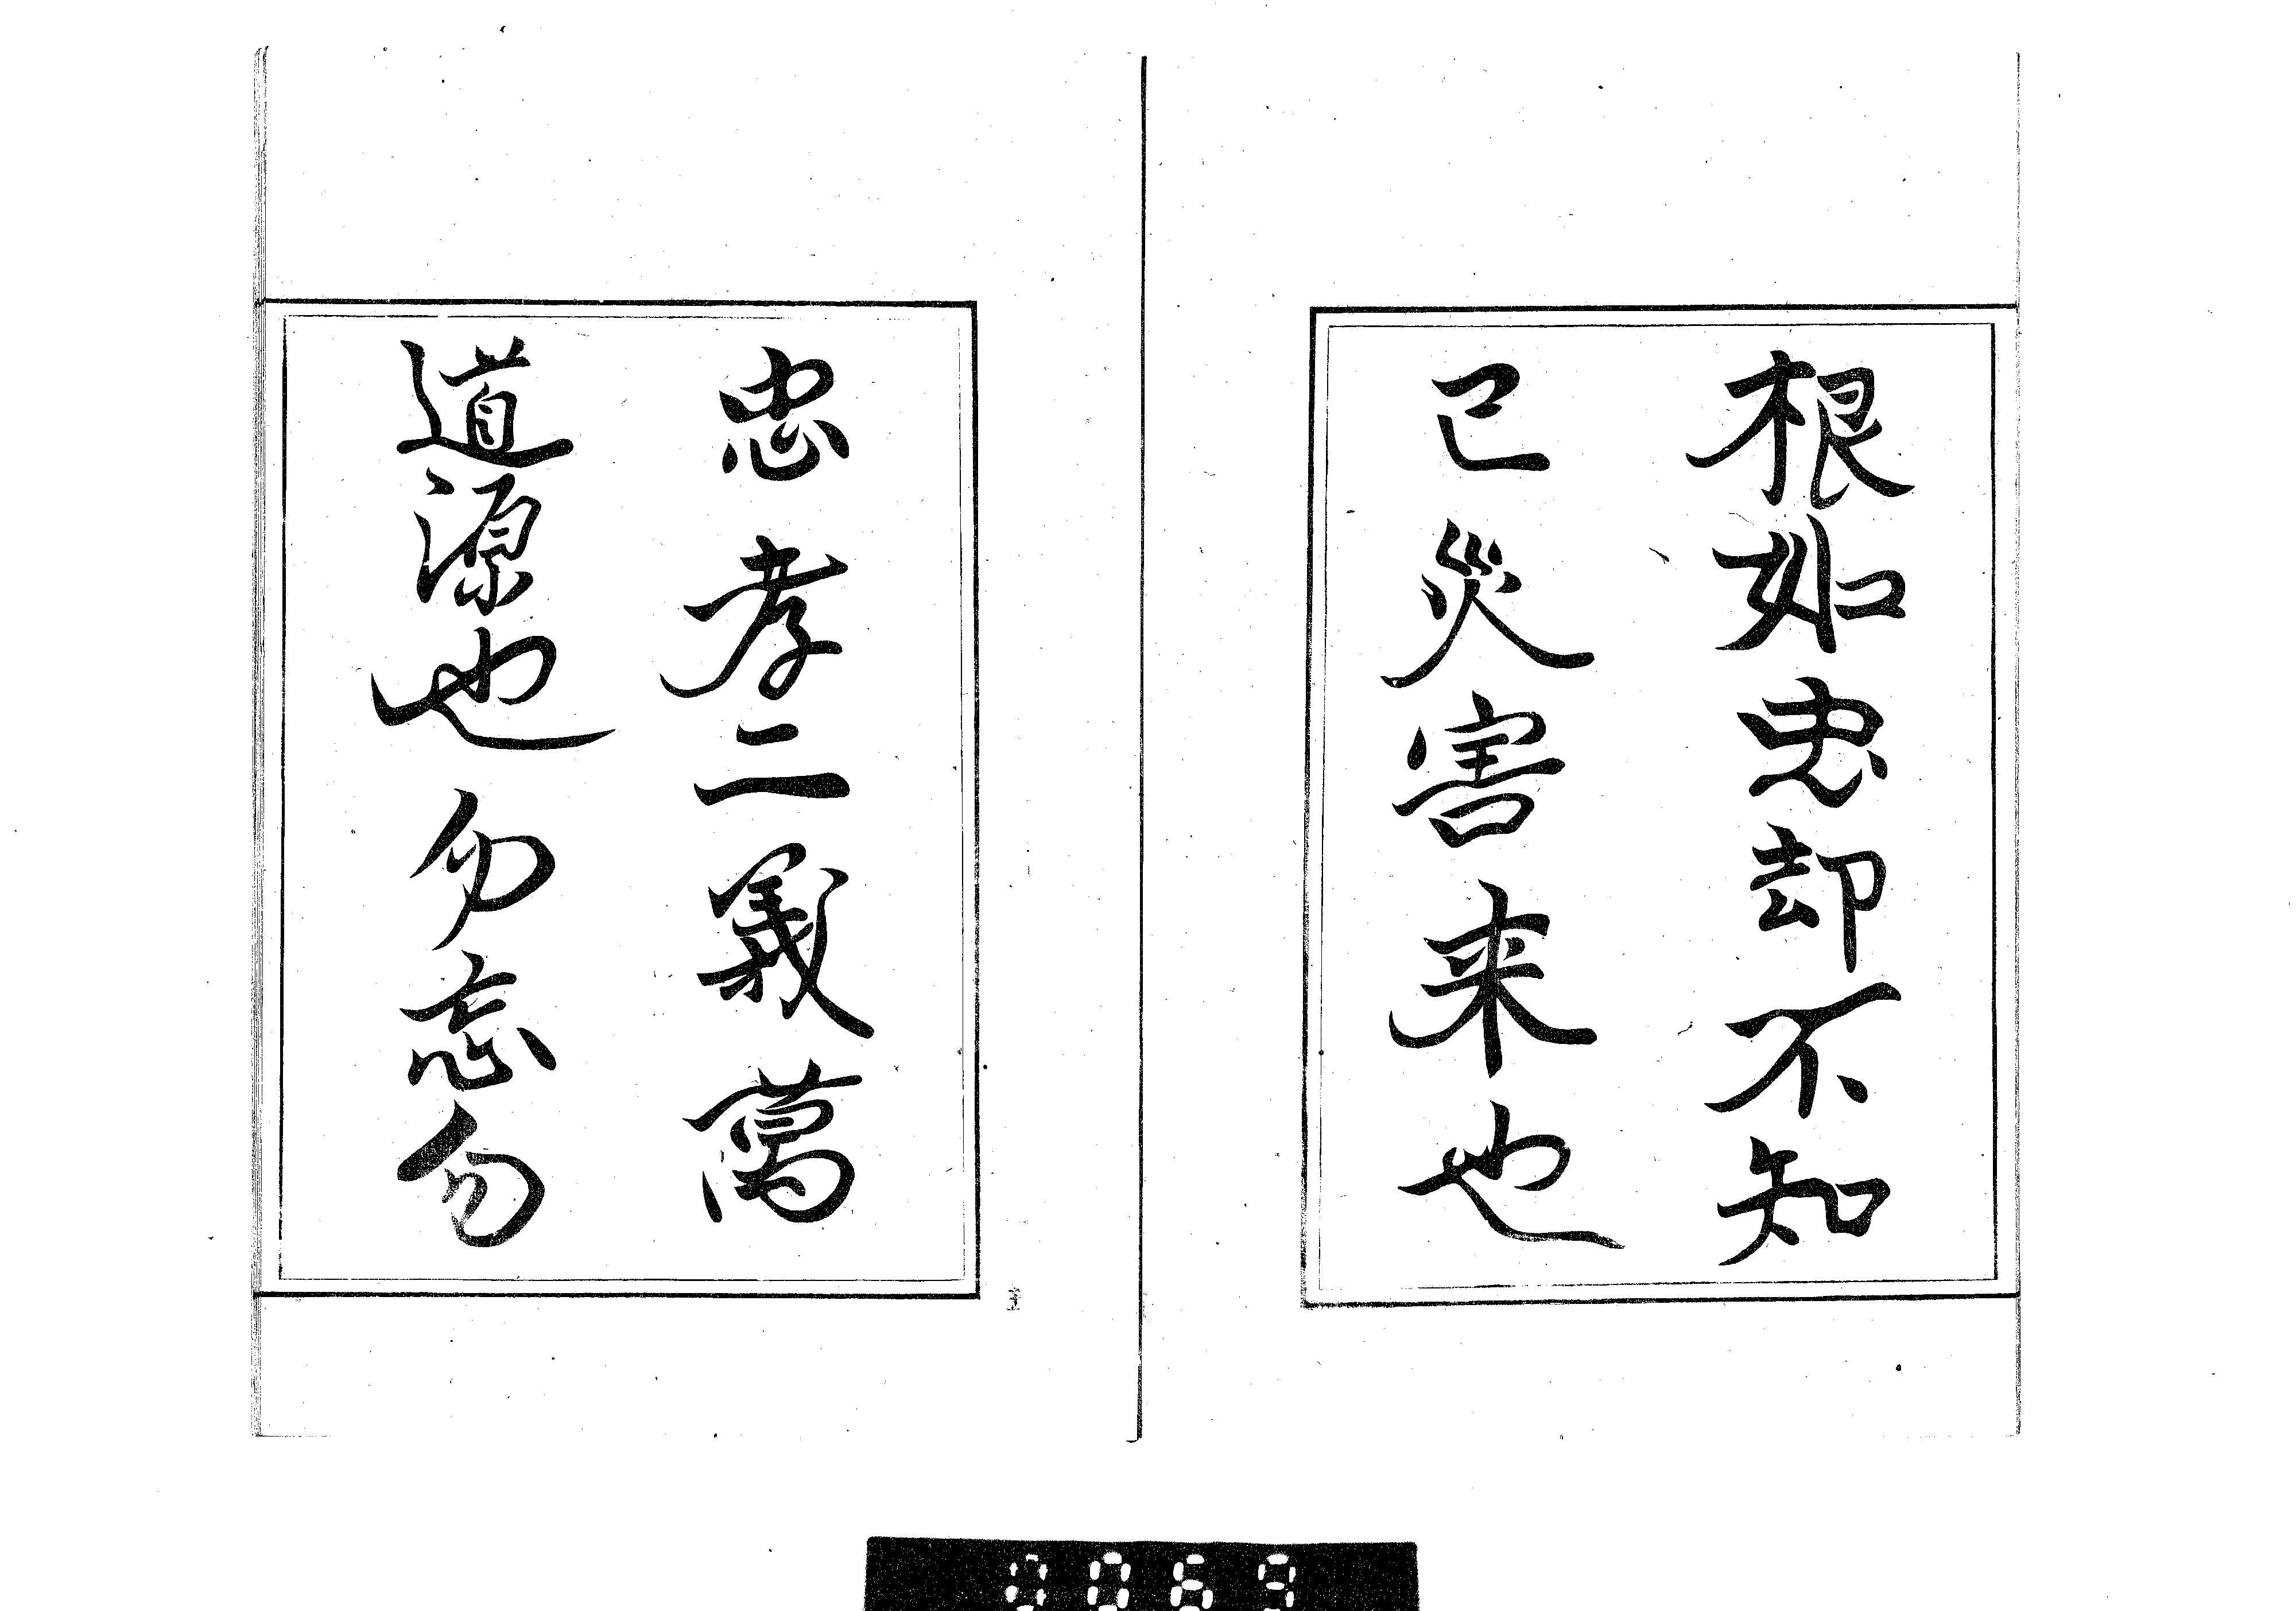 根如忠却不知
己災害来也
忠孝二義萬
道源也勿忘勿
0069